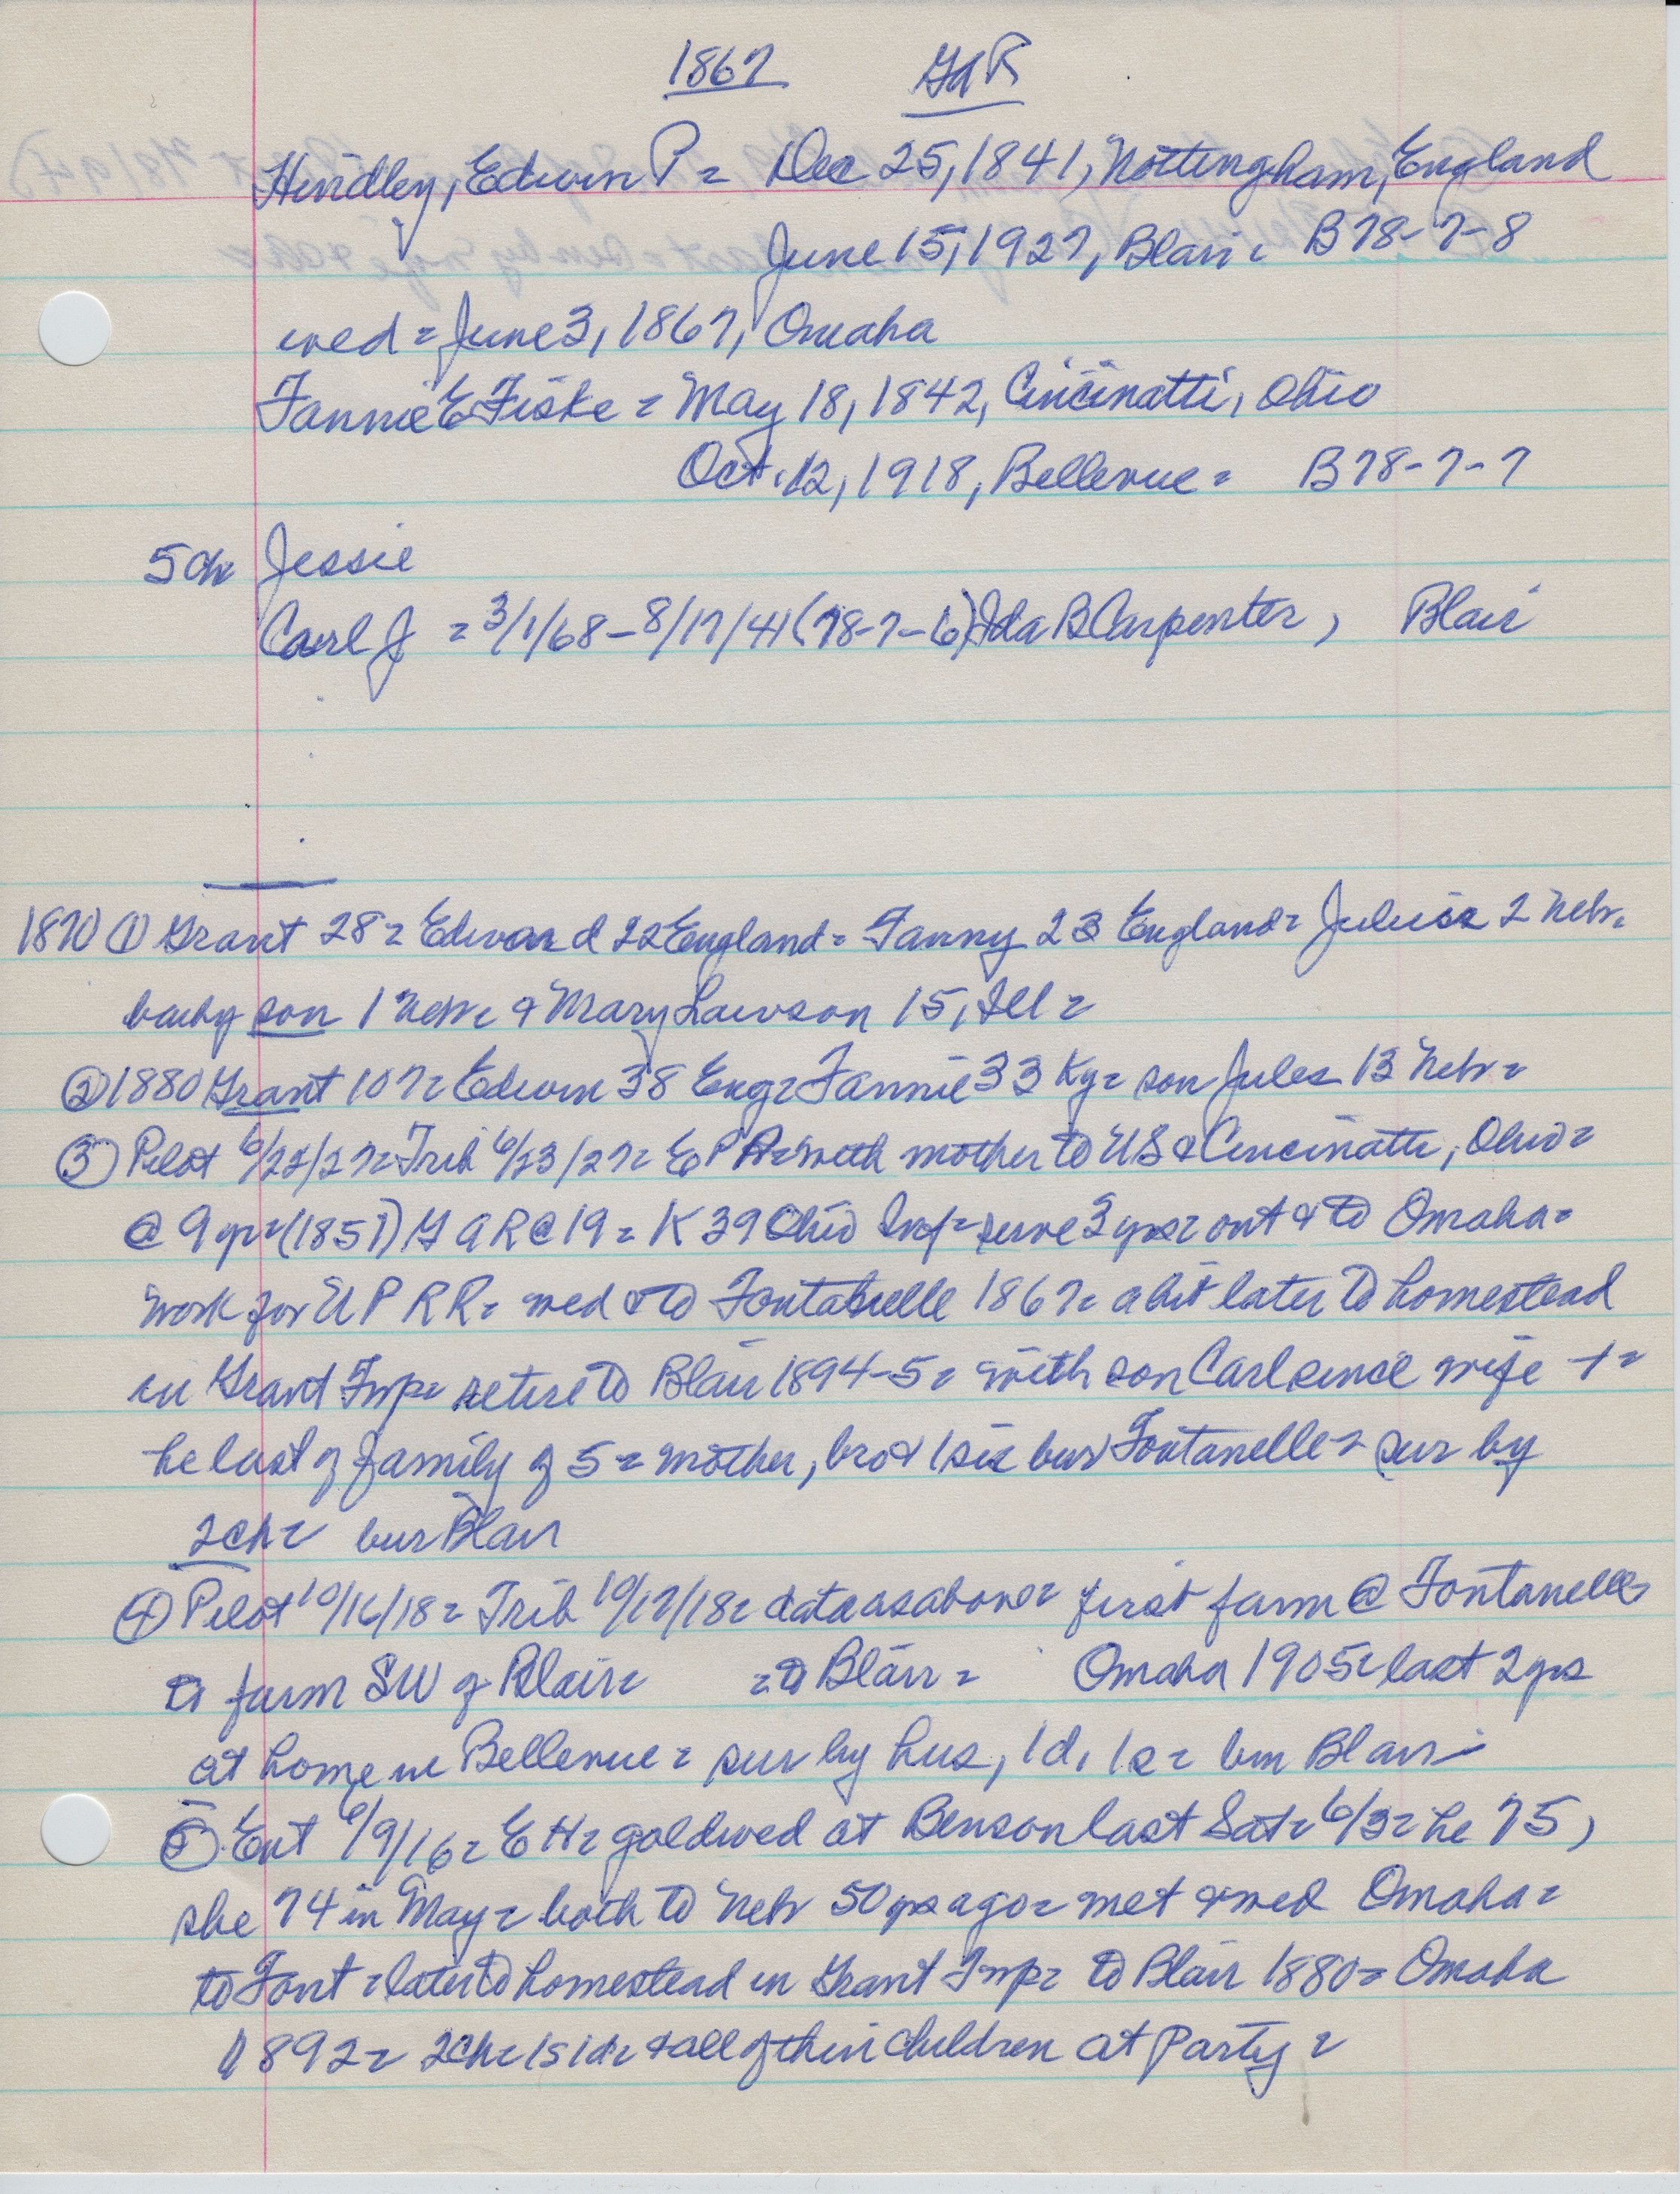 1867 GAR
Hindley, Edwin P = Dec 25, 1841, Nottingham, England
June 15, 1927, Blair = B78-7-8
wed = June 3, 1867, Omaha
Fannie E Fiske = May 18, 1842, Cincinatti, Ohio
Oct. 12, 1918, Bellevue = B78-7-7
5 ch Jessie
Carl J = 3/1/68 - 8/17/41 (78-7-6) Ida B Carpenter, Blair
1870 ① Grant 28 = Edward 22 England = Fanny 23 England = 2 Nebr =
baby son 1 Nebr = & Mary Lawson 15, Ill =
② 1880 Grant 107 = Edwin 38 Eng = Fannie 33 Ky = son Jules 13 Nebr =
③ Pilot 6/22/27 = Trib 6/23/27 = E P H = with mother to US & Cincinatti, Ohio =
@ 9 yr = (1851) G A R @ 19 = K 39 Ohio Inf = serve 3 yrs = out & to Omaha =
work for U P R R = wed & to Fontanelle 1867 = a bit later to homestead
in Grant Twp = retire to Blair 1894-5 = with son Carl since wife + =
he last of family of 5 = mother, bro & 1 sis bur Fontanelle = sur by
2 ch = bur Blair
④ Pilot 10/16/18 = Trib 10/17/18 = data as above = first farm @ Fontanelle
to farm SW of Blair = = to Blair = Omaha 1905 = last 2 yrs
at home in Bellevue = sur by hus, 1 d, 1 s = bur Blair
⑤ Ent 6/9/16 = E H = gold wed at Benson last Sat = 6/3 = he 75,
she 74 in May = both to Nebr 50 yrs ago = met & wed Omaha =
to Font = later to homestead in Grant Twp = to Blair 1880 = Omaha
1892 = 2 ch = 1 s 1 d = & all of their children at party =